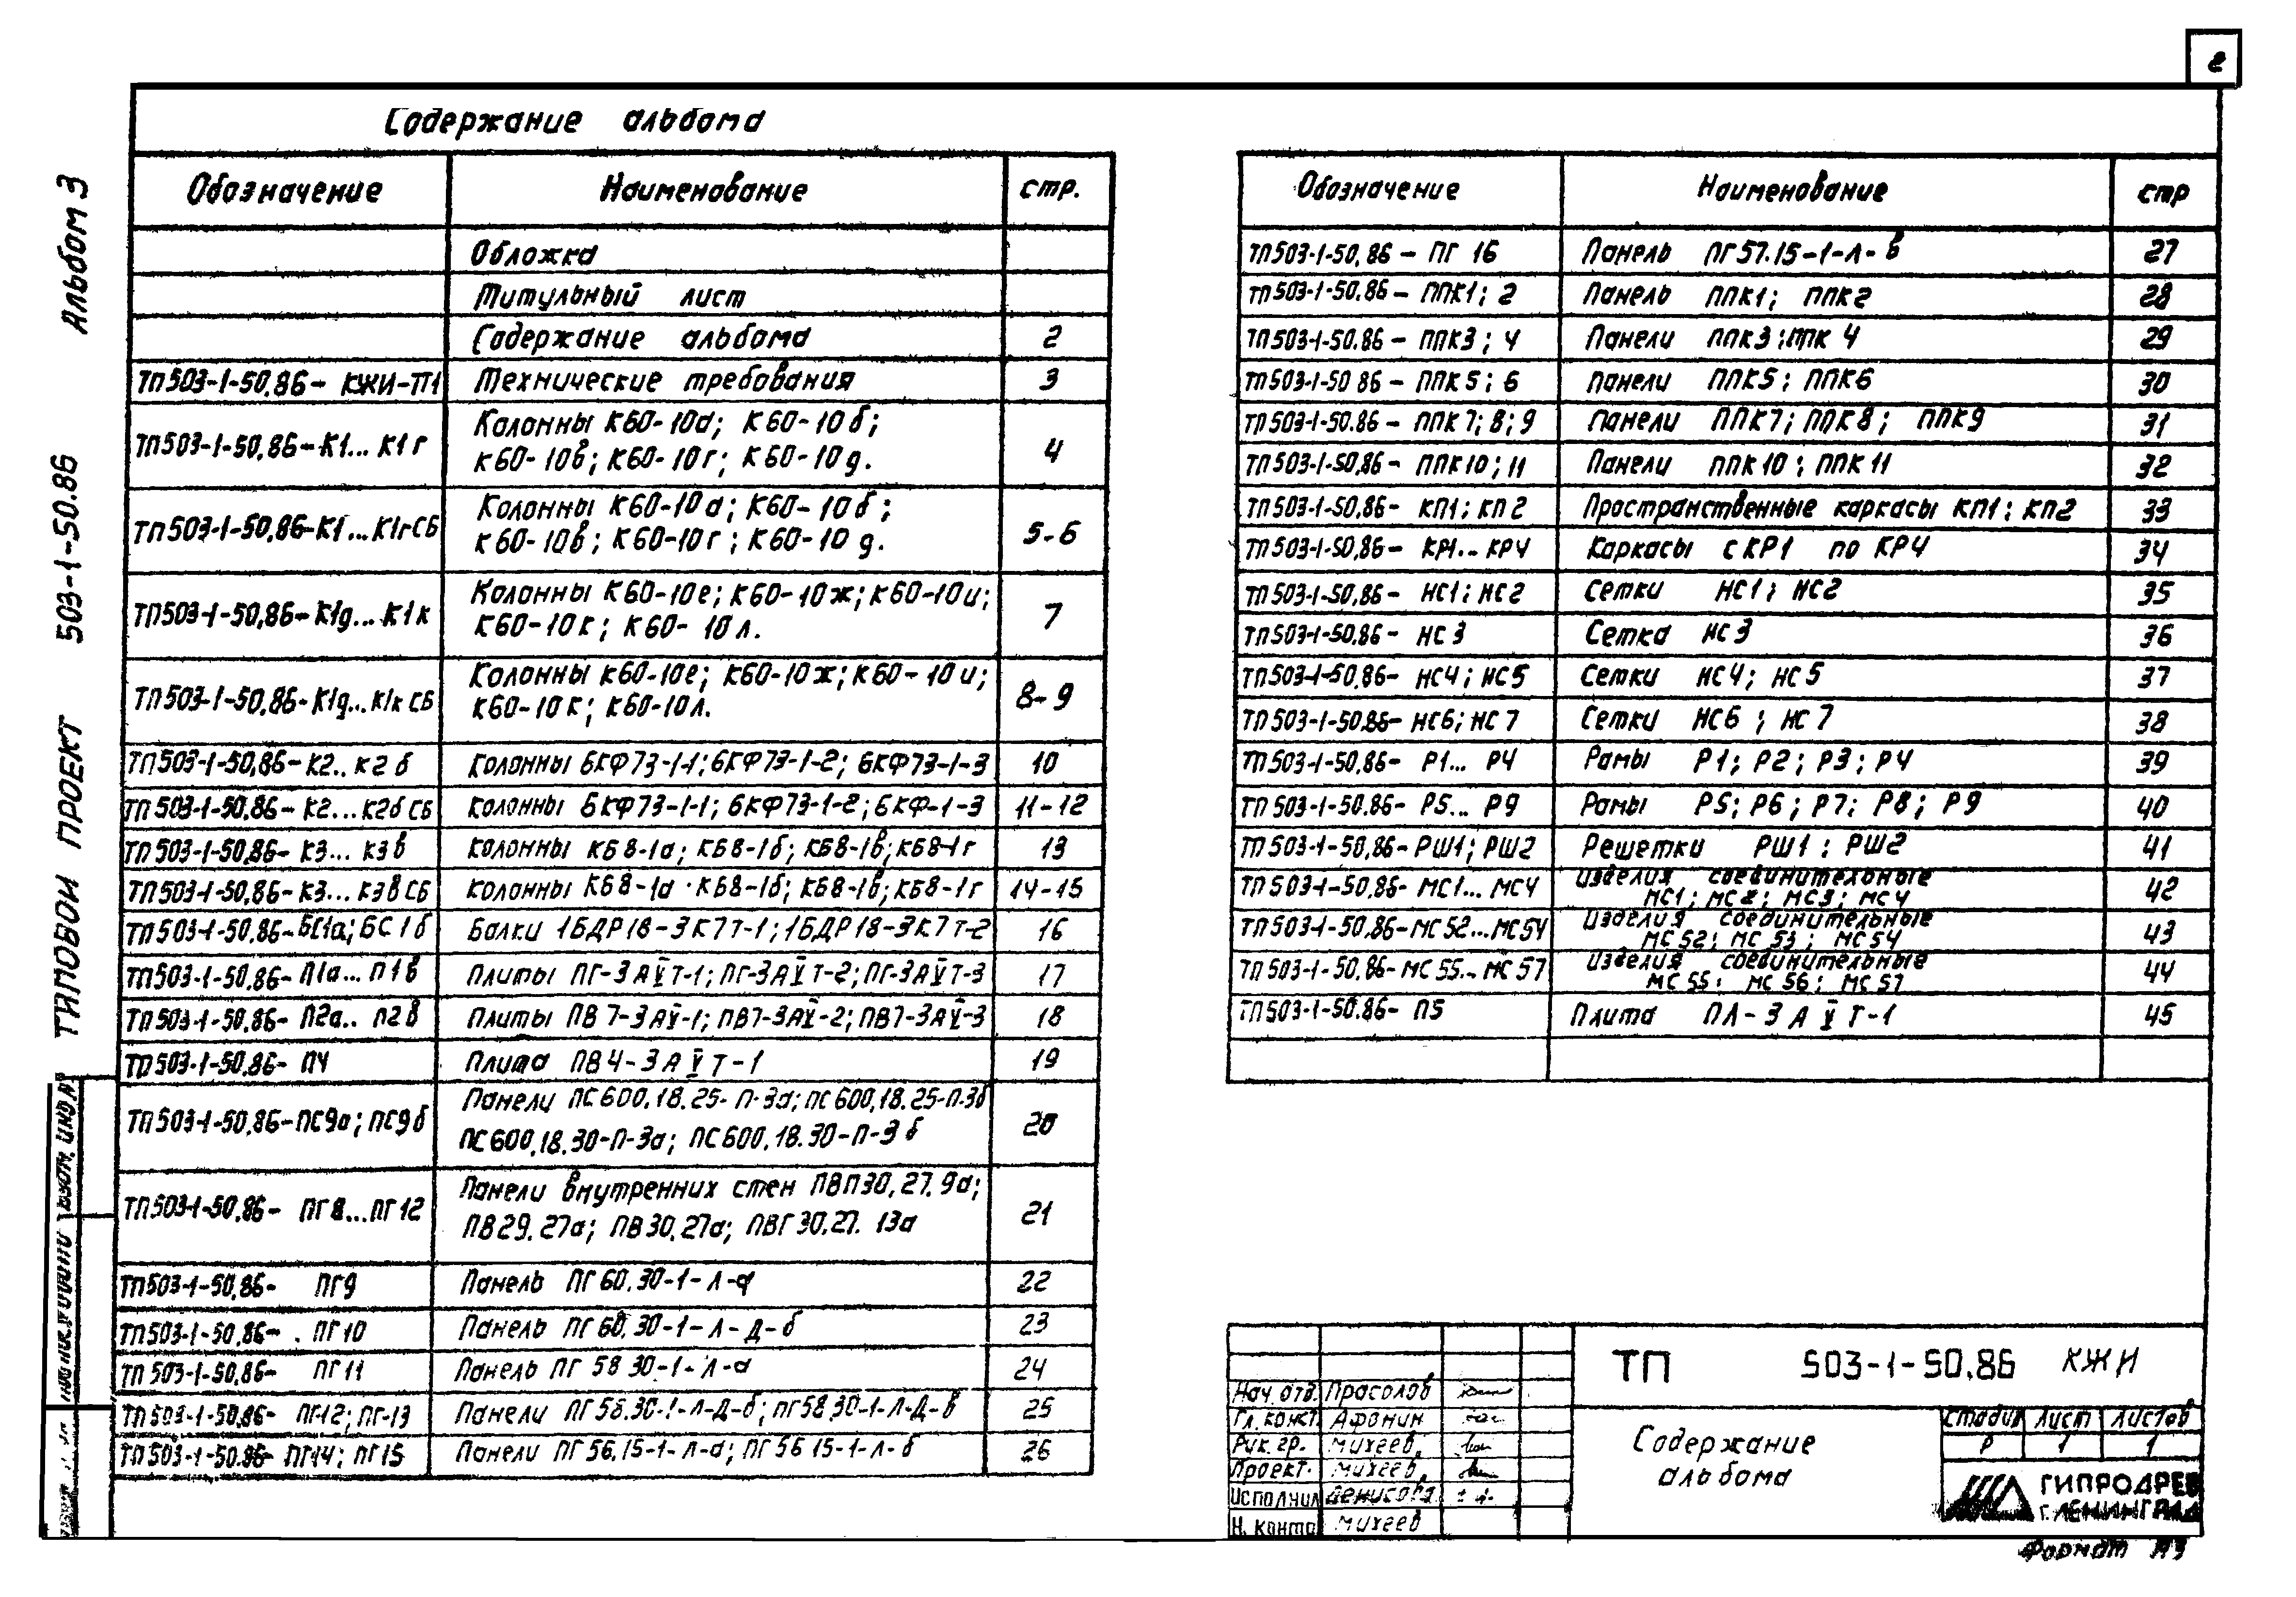 2
Содержание альбома
Обозначение Наименование стр.
Обложка
Титульный лист
Содержание альбома 2
ТП503-1-50.86- КЖИ-ТТ1 Технические требования 3
ТП503-1-50.86-К1... К1г Колонны К60-10а; К60-10б; 4
К60-10в; К60-10г; К60-10д.
ТП503-1-50.86-К1...К1гСБ Колонны К60-10а; К60-10б; 5-6
К60-10в; К60-10г; К60-10д.
ТП503-1-50.86-К1д...К1к Колонны К60-10е; К60-10ж; К60-10и; 7
К60-10к; К60-10л.
ТП503-1-50.86-К1д...К1кСБ Колонны К60-10е; К60-10ж; К60-10и; 8-9
К60-10к; К60-10л.
ТП503-1-50.86-К2..К2б Колонны 6КФ73-1-1; 6КФ73-1-2; 6КФ73-1-3 10
ТП503-1-50.86-К2...К2бСБ Колонны 6КФ73-1-1; 6КФ73-1-2; 6КФ-1-3 11-12
ТП503-1-50.86- К3... К3в Колонны К68-1а; К68-1б; К68-1в; К68-1г 13
ТП503-1-50.86-К3... К3вСБ Колонны К68-1а К68-1б; К68-1в; К68-1г 14-15
ТП503-1-50.86-БС1а; БС1б Балки 1БДР18-3К7Т-1; 1БДР18-3К7Т-2 16
ТП503-1-50.86-П1а... П1в Плиты ПГ-3АⅣТ-1; ПГ-3АⅣТ-2; ПГ-3АⅣТ-3 17
ТП503-1-50.86- П2а.. П2в Плиты ПВ7-3АⅤ-1; ПВ7-3АⅤ-2; ПВ7-3АⅤ-3 18
ТП503-1-50.86- П4 Плита ПВ4-3АⅤТ-1 19
ТП503-1-50.86-ПС9а; ПС9б Панели ПС600.18.25-П-3а; ПС600.18.25-П-3б 20
ПС600.18.30-П-3а; ПС600.18.30-П-3б
ТП503-1-50.86- ПГ8...ПГ12 Панели внутренних стен ПВП30.27.9а; 21
ПВ29.27а; ПВ30.27а; ПВГ30.27.13а
ТП503-1-50.86- ПГ9 Панель ПГ60.30-1-Л-а 22
ТП503-1-50.86- ПГ10 Панель ПГ60.30-1-Л-Д-б 23
ТП503-1-50.86- ПГ11 Панель ПГ 58 30-1-Л-а 24
ТП503-1-50.86- ПГ-12; ПГ-13 Панели ПГ58.30-1-Л-Д-б; ПГ58.30-1-Л-Д-в 25
ТП503-1-50.86- ПГ14; ПГ15 Панели ПГ56.15-1-Л-а; ПГ56 15-1-Л-б 26
Обозначение Наименование стр
ТП503-1-50.86 - ПГ 16 Панель ПГ57.15-1-Л-в 27
ТП503-1-50.86 - ППК1; 2 Панель ППК1; ППК2 28
ТП503-1-50.86 - ППК3; 4 Панели ППК3; ППК 4 29
ТП503-1-50 86 - ППК5; 6 Панели ППК5; ППК6 30
ТП503-1-50.86 - ППК7; 8; 9 Панели ППК7; ППК8; ППК9 31
ТП503-1-50.86- ППК10; 11 Панели ППК10; ППК11 32
ТП503-1-50.86- КП1; КП2 Пространственные каркасы КП1; КП2 33
ТП503-1-50.86- КР1.. КР4 Каркасы с КР1 по КР4 34
ТП503-1-50.86- НС1; НС2 Сетки НС1; НС2 35
ТП503-1-50.86- НС3 Сетка НС3 36
ТП503-1-50.86- НС4; НС5 Сетки НС4; НС5 37
ТП503-1-50.86- НС6; НС7 Сетки НС6; НС7 38
ТП503-1-50.86- Р1... Р4 Рамы Р1; Р2; Р3; Р4 39
ТП503-1-50.86- Р5... Р9 Рамы Р5; Р6; Р7; Р8; Р9 40
ТП503-1-50.86-РШ1; РШ2 Решетки РШ1; РШ2 41
ТП503-1-50.86- МС1... МС4 Изделия соединительные 42
МС1; МС2; МС3; МС4
ТП503-1-50.86-МС52...МС54 Изделия соединительные 43
МС52; МС53; МС54
ТП503-1-50.86-МС55..МС57 Изделия соединительные 44
МС55; МС56; МС57
ТП503-1-50.86- П5 Плита ПЛ-3АⅤТ-1 45
Альбом 3
503-1-50.86
ТИПОВОЙ ПРОЕКТ
ТП 503-1-50.86 КЖИ
Нач. отд. Прасолов
Гл. конст. Афонин
Рук. гр. Михеев
Проект. Михеев
Исполнил Денисова
Н. контр Михеев
Содержание
альбома
Стадия Лист Листов
Р 1 1
ГИПРОДРЕВ
г. ЛЕНИНГРАД
Формат А3